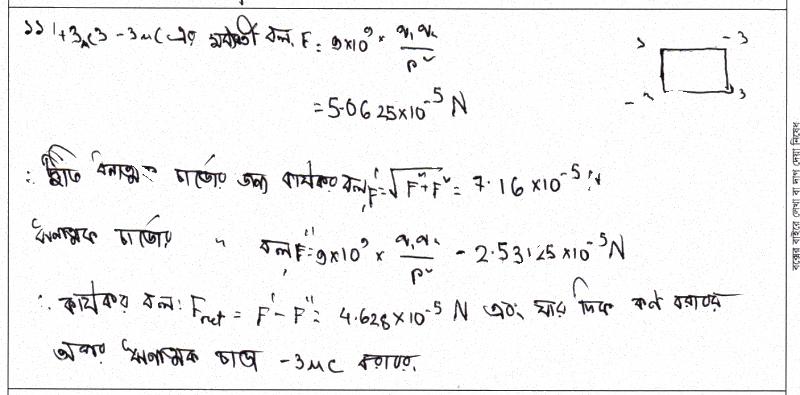 ১১। +3μC ও -3μC এর মধ্যবর্তী বল, F = 9×10⁹ × q₁q₂/r²
= 5.0625×10⁻⁵ N
3 -3
- 3
∴ দুটি ঋনাত্মক চার্জের জন্য কার্যকর বল, F' = √F²+F² = 7.16×10⁻⁵ N
ধনাত্মক চার্জের " বল F'' = 9×10⁹ × q₁q₂/r² = 2.53125×10⁻⁵ N
∴ কার্যকর বল: F_net = F' - F'' = 4.628×10⁻⁵ N এবং যার দিক কর্ণ বরাবর
অপর ধনাত্মক চার্জ -3μC বরাবর।
বক্সের বাইরে লেখা বা দাগ দেয়া নিষেধ